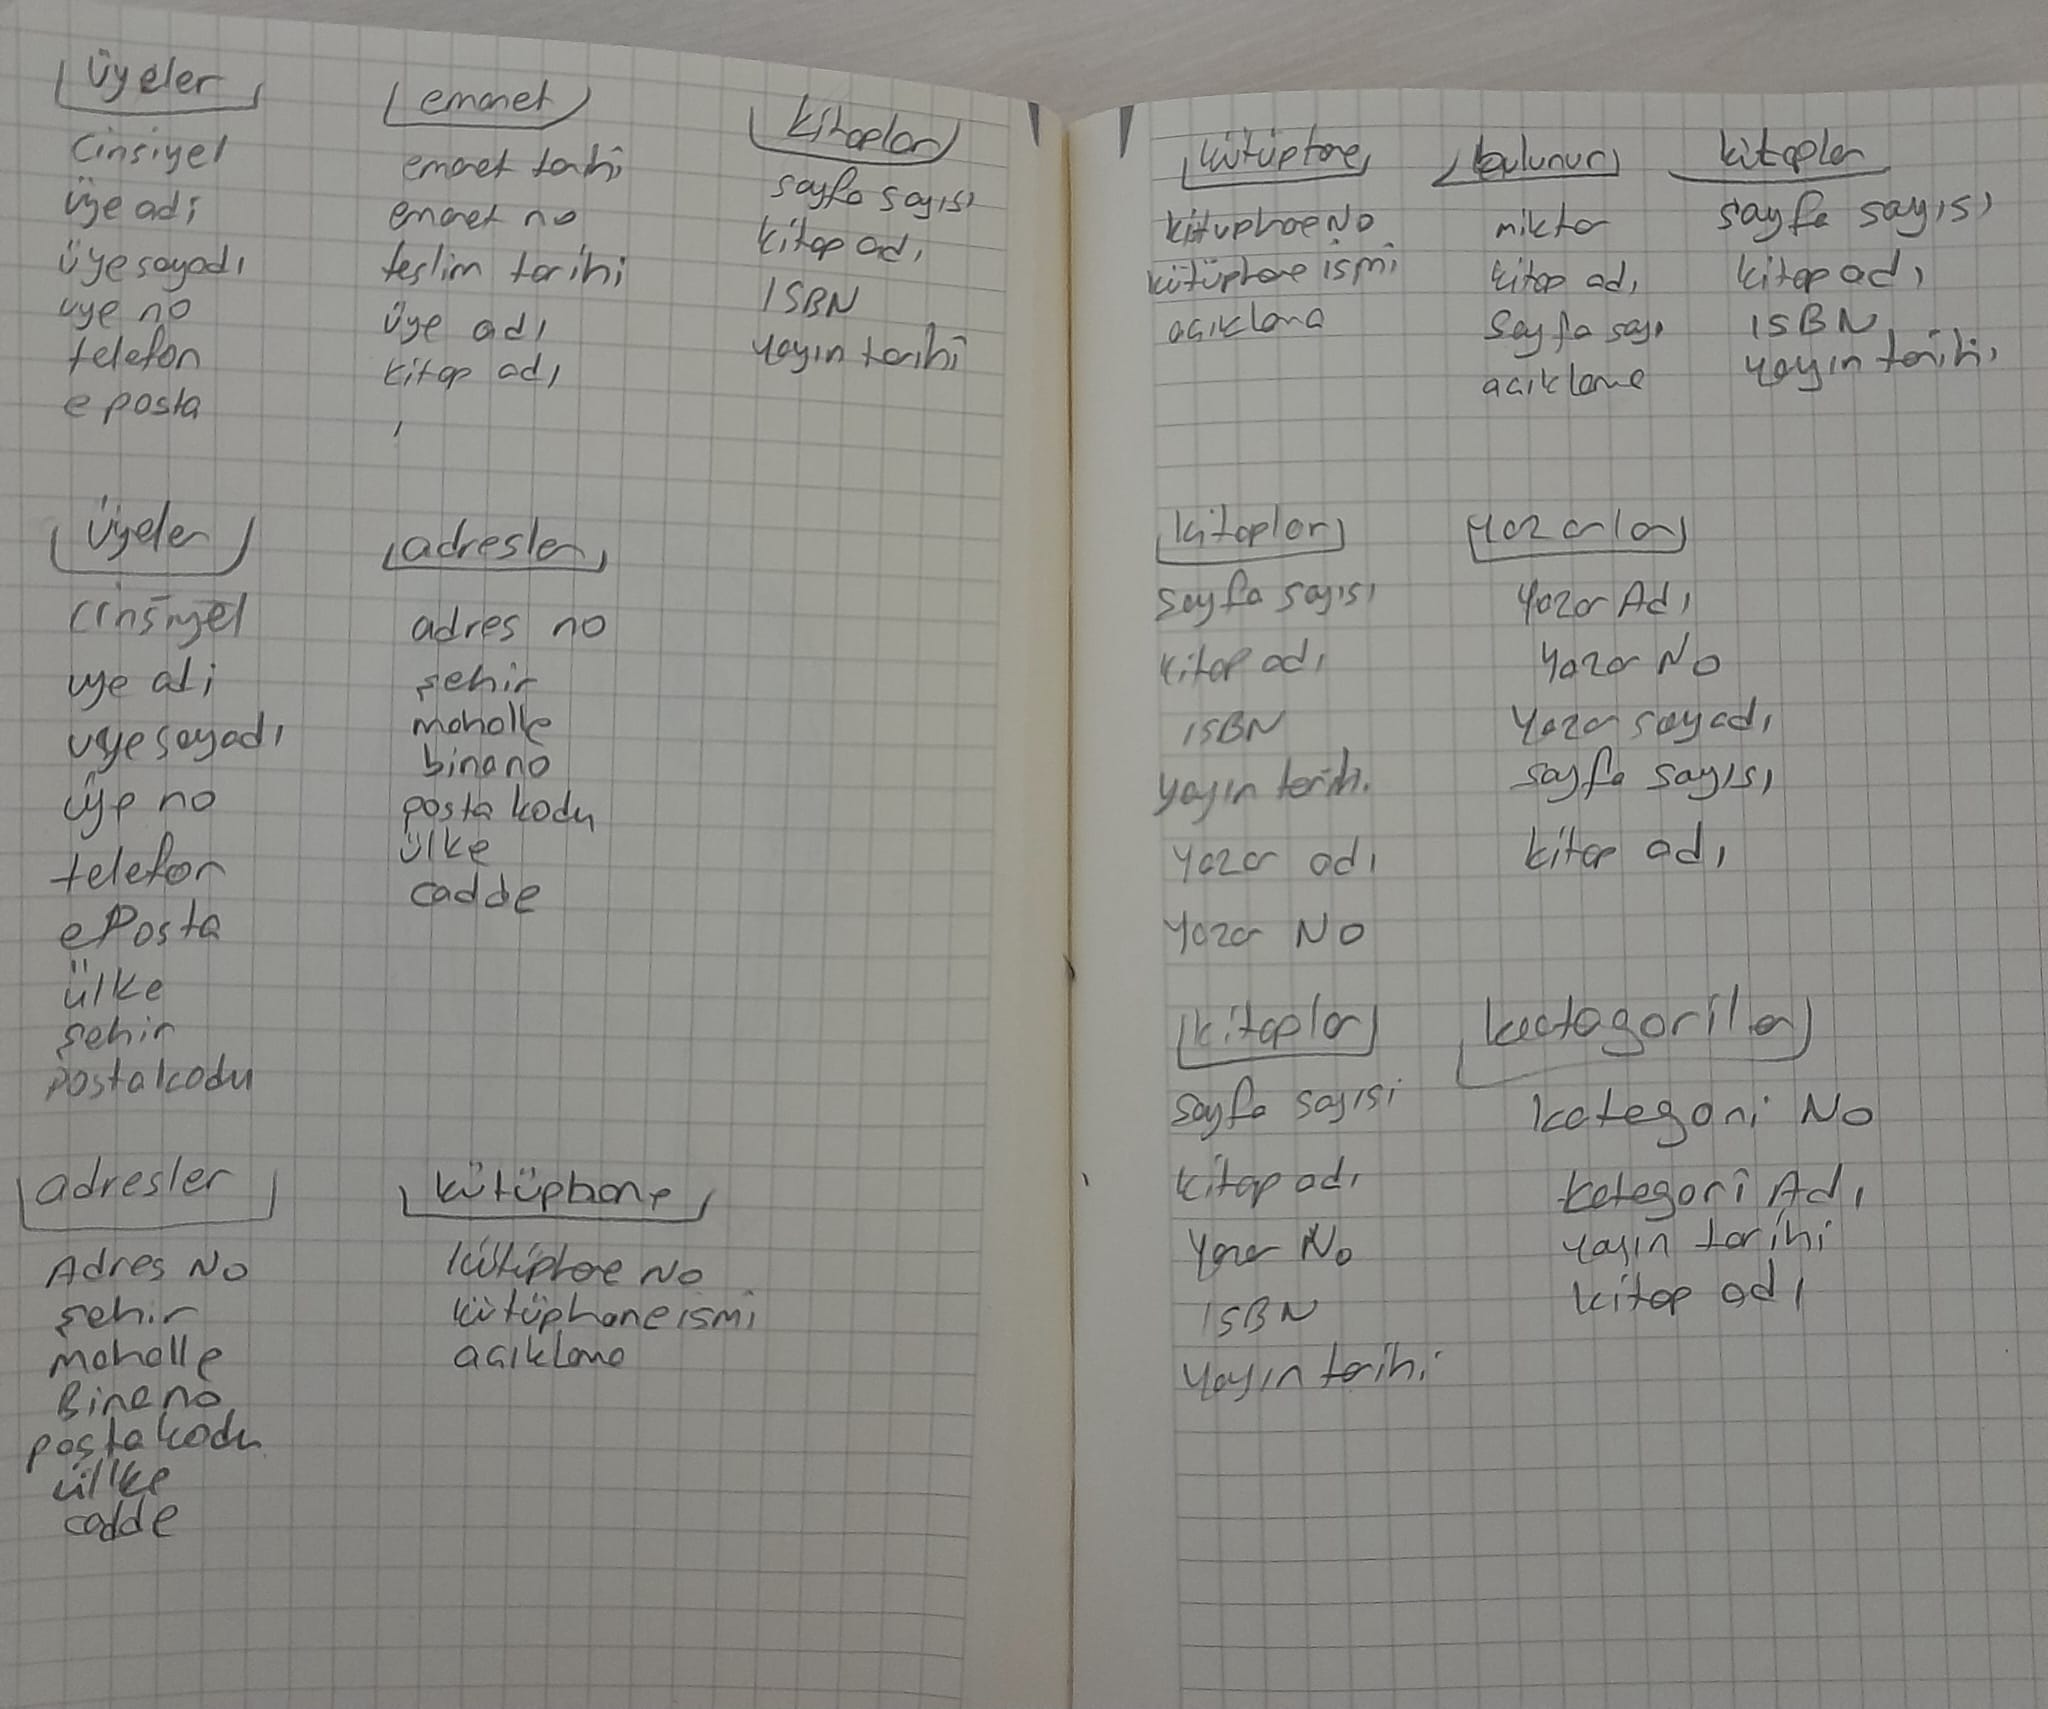 üyeler
cinsiyet
üye adi
üye soyadı
uye no
telefon
e posta
emanet
emanet tarihi
emanet no
teslim tarihi
üye adı
kitap adı
kitaplar
sayfa sayısı
kitap adı
ISBN
yayın tarihi
üyeler
cinsiyet
uye adi
uye soyadı
üye no
telefon
ePosta
ülke
şehir
postakodu
adresler
adres no
şehir
mahalle
bina no
posta kodu
ülke
cadde
adresler
Adres No
şehir
Mahalle
Bina no
posta kodu
ülke
cadde
kütüphane
kütüphane No
kütüphane ismi
acıklama
kütüphane
kütüphane No
kütüphane ismi
acıklama
bulunur
miktar
kitap adı
Sayfa sayı
acıklama
kitaplar
sayfa sayısı
kitap adı
ISBN
yayın tarihi
kitaplar
sayfa sayısı
kitap adı
ISBN
yayın tarihi
yazar adı
yazar No
yazarlar
Yazar Adı
Yazar No
Yazar soyadı
sayfa sayısı
kitap adı
kitaplar
sayfa sayısi
kitap adı
Yazar No
ISBN
yayın tarihi
katagoriler
kategori No
kategori Adı
yayın tarihi
kitap adı